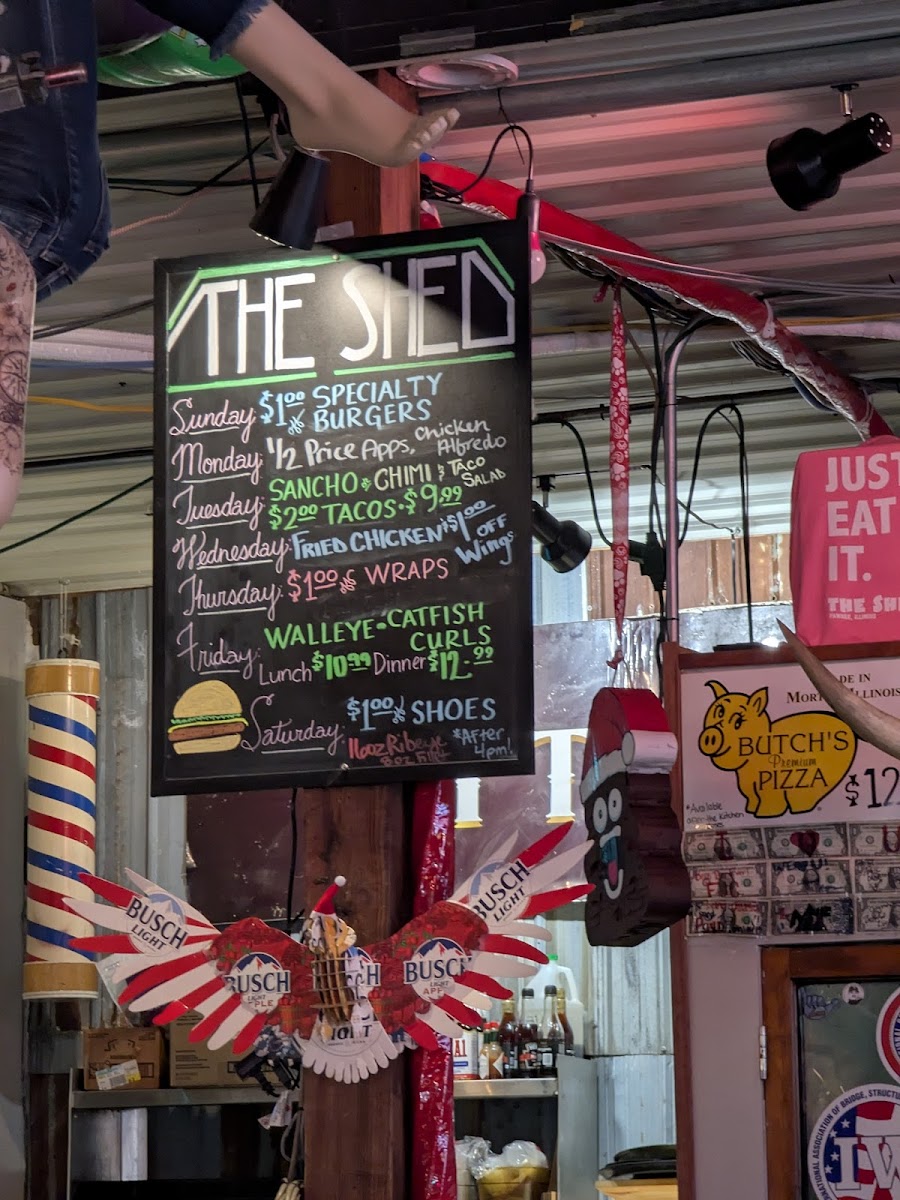 THE SHED
Sunday: $1.00 off SPECIALTY
BURGERS
Monday: 1/2 Price Apps, Chicken
Alfredo
Tuesday: SANCHO & CHIMI & TACO
SALAD
$2.00 TACOS • $9.99
Wednesday: FRIED CHICKEN • $1.00
OFF
Wings
Thursday: $1.00 off WRAPS
Friday: WALLEYE - CATFISH
CURLS
Lunch $10.99 Dinner $12.99
Saturday: $1.00 off SHOES
11oz Ribeye
8oz Filet
*After
4pm!
JUST
EAT
IT.
THE SHE
MORT ILLINOIS
BUTCH'S
Premium
PIZZA
$12
*Available
when the Kitchen
BUSCH
LIGHT
BUSCH
LIGHT
BUSCH
LIGHT
PLE
BUSCH
LIGHT
APP
A1
NATIONAL ASSOCIATION OF BRIDGE, STRUCTU
IW